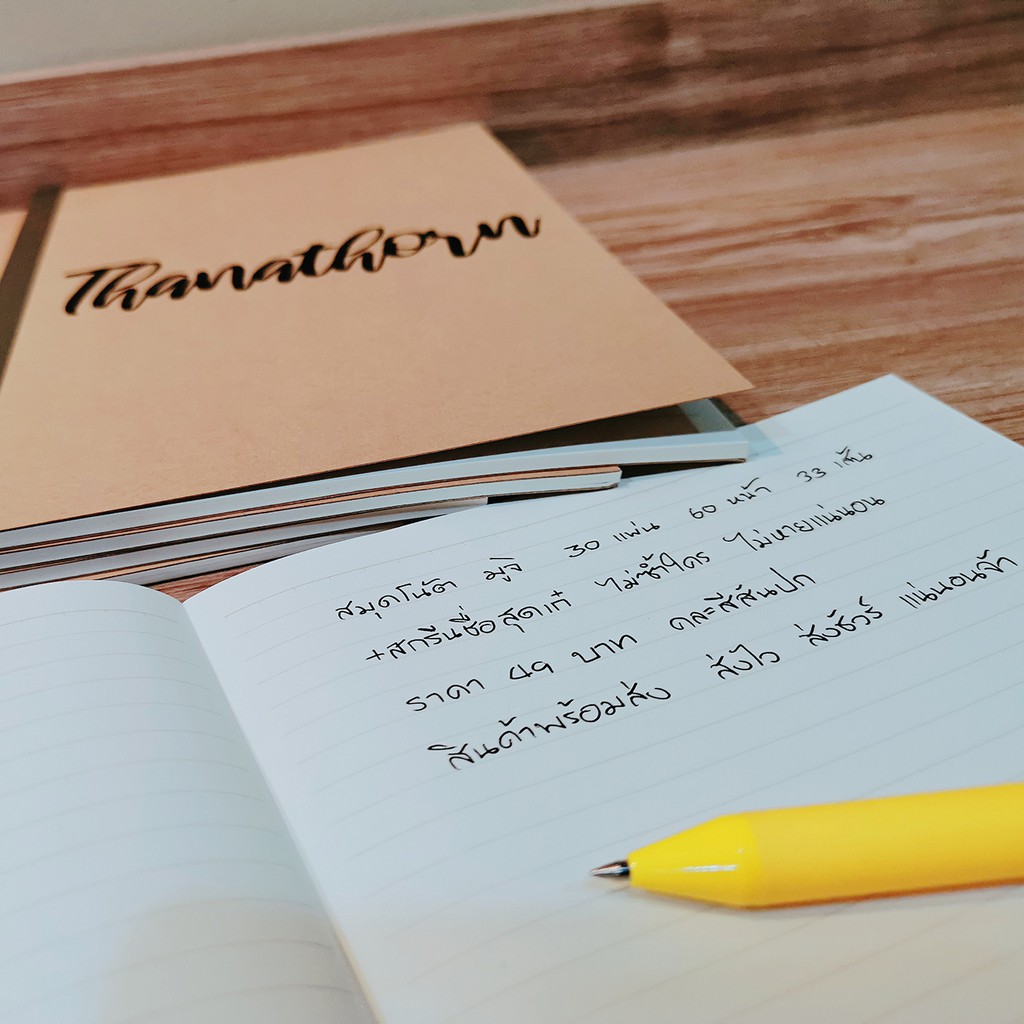 Thanathorn
สมุดโน้ต มูจิ 30 แผ่น 60 หน้า 33 เส้น
+สกรีนชื่อสุดเก๋ ไม่ซ้ำใคร ไม่หายแน่นอน
ราคา 49 บาท คละสีสันปก
สินค้าพร้อมส่ง ส่งไว ส่งชัวร์ แน่นอนจ้า